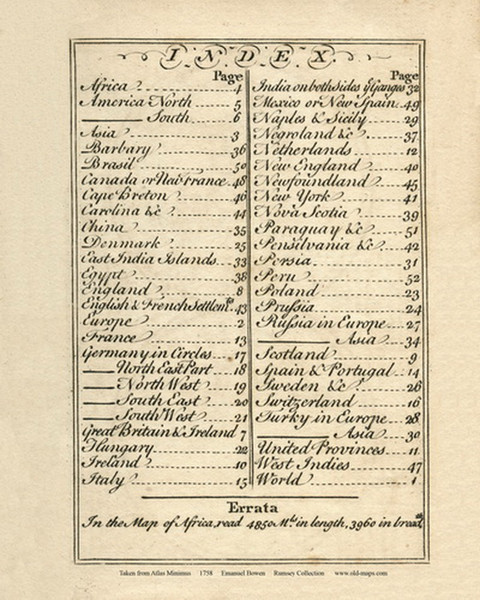 INDEX.
Page
Africa 4
America North 5
South 6
Asia 3
Barbary 36
Brasil 50
Canada or New France 48
Cape Breton 46
Carolina &c 44
China 35
Denmark 25
East India Islands 33
Egypt 38
England 8
English & French Settlem.ts 43
Europe 2
France 13
Germany in Circles 17
North East Part 18
North West 19
South East 20
South West 21
Great Britain & Ireland 7
Hungary 22
Ireland 10
Italy 15
Page
India on both Sides ye Ganges 32
Mexico or New Spain 49
Naples & Sicily 29
Negroland &c 37
Netherlands 12
New England 40
Newfoundland 45
New York 41
Nova Scotia 39
Paraguay &c 51
Pensilvania &c 42
Persia 31
Peru 52
Poland 23
Prussia 24
Russia in Europe 27
Asia 34
Scotland 9
Spain & Portugal 14
Sweden &c 26
Switzerland 16
Turky in Europe 28
Asia 30
United Provinces 11
West Indies 47
World 1
Errata
In the Map of Africa, read 4850 M.s in length, 3960 in breadth
Taken from Atlas Minimus 1758 Emanuel Bowen Rumsey Collection www.old-maps.com